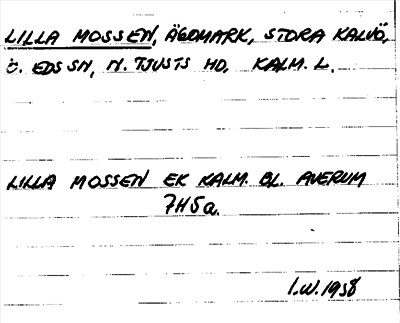 LILLA MOSSEN, ÄGOMARK, STORA KALVÖ,
Ö. EDS SN, N. TJUSTS HD, KALM. L.
LILLA MOSSEN EK KALM. BL. AVERUM
7H5a.
I.W. 1958